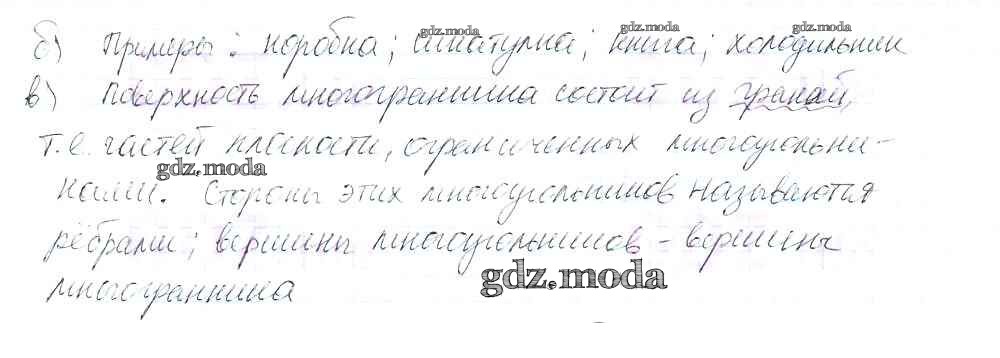 б) Примеры: коробка; шкатулка; книга; холодильник
в) Поверхность многогранника состоит из граней,
т.е. частей плоскости, ограниченных многоугольни-
ками. Стороны этих многоугольников называются
рёбрами; вершины многоугольников - вершины
многогранника
gdz.moda
gdz.moda
gdz.moda
gdz.moda
gdz.moda